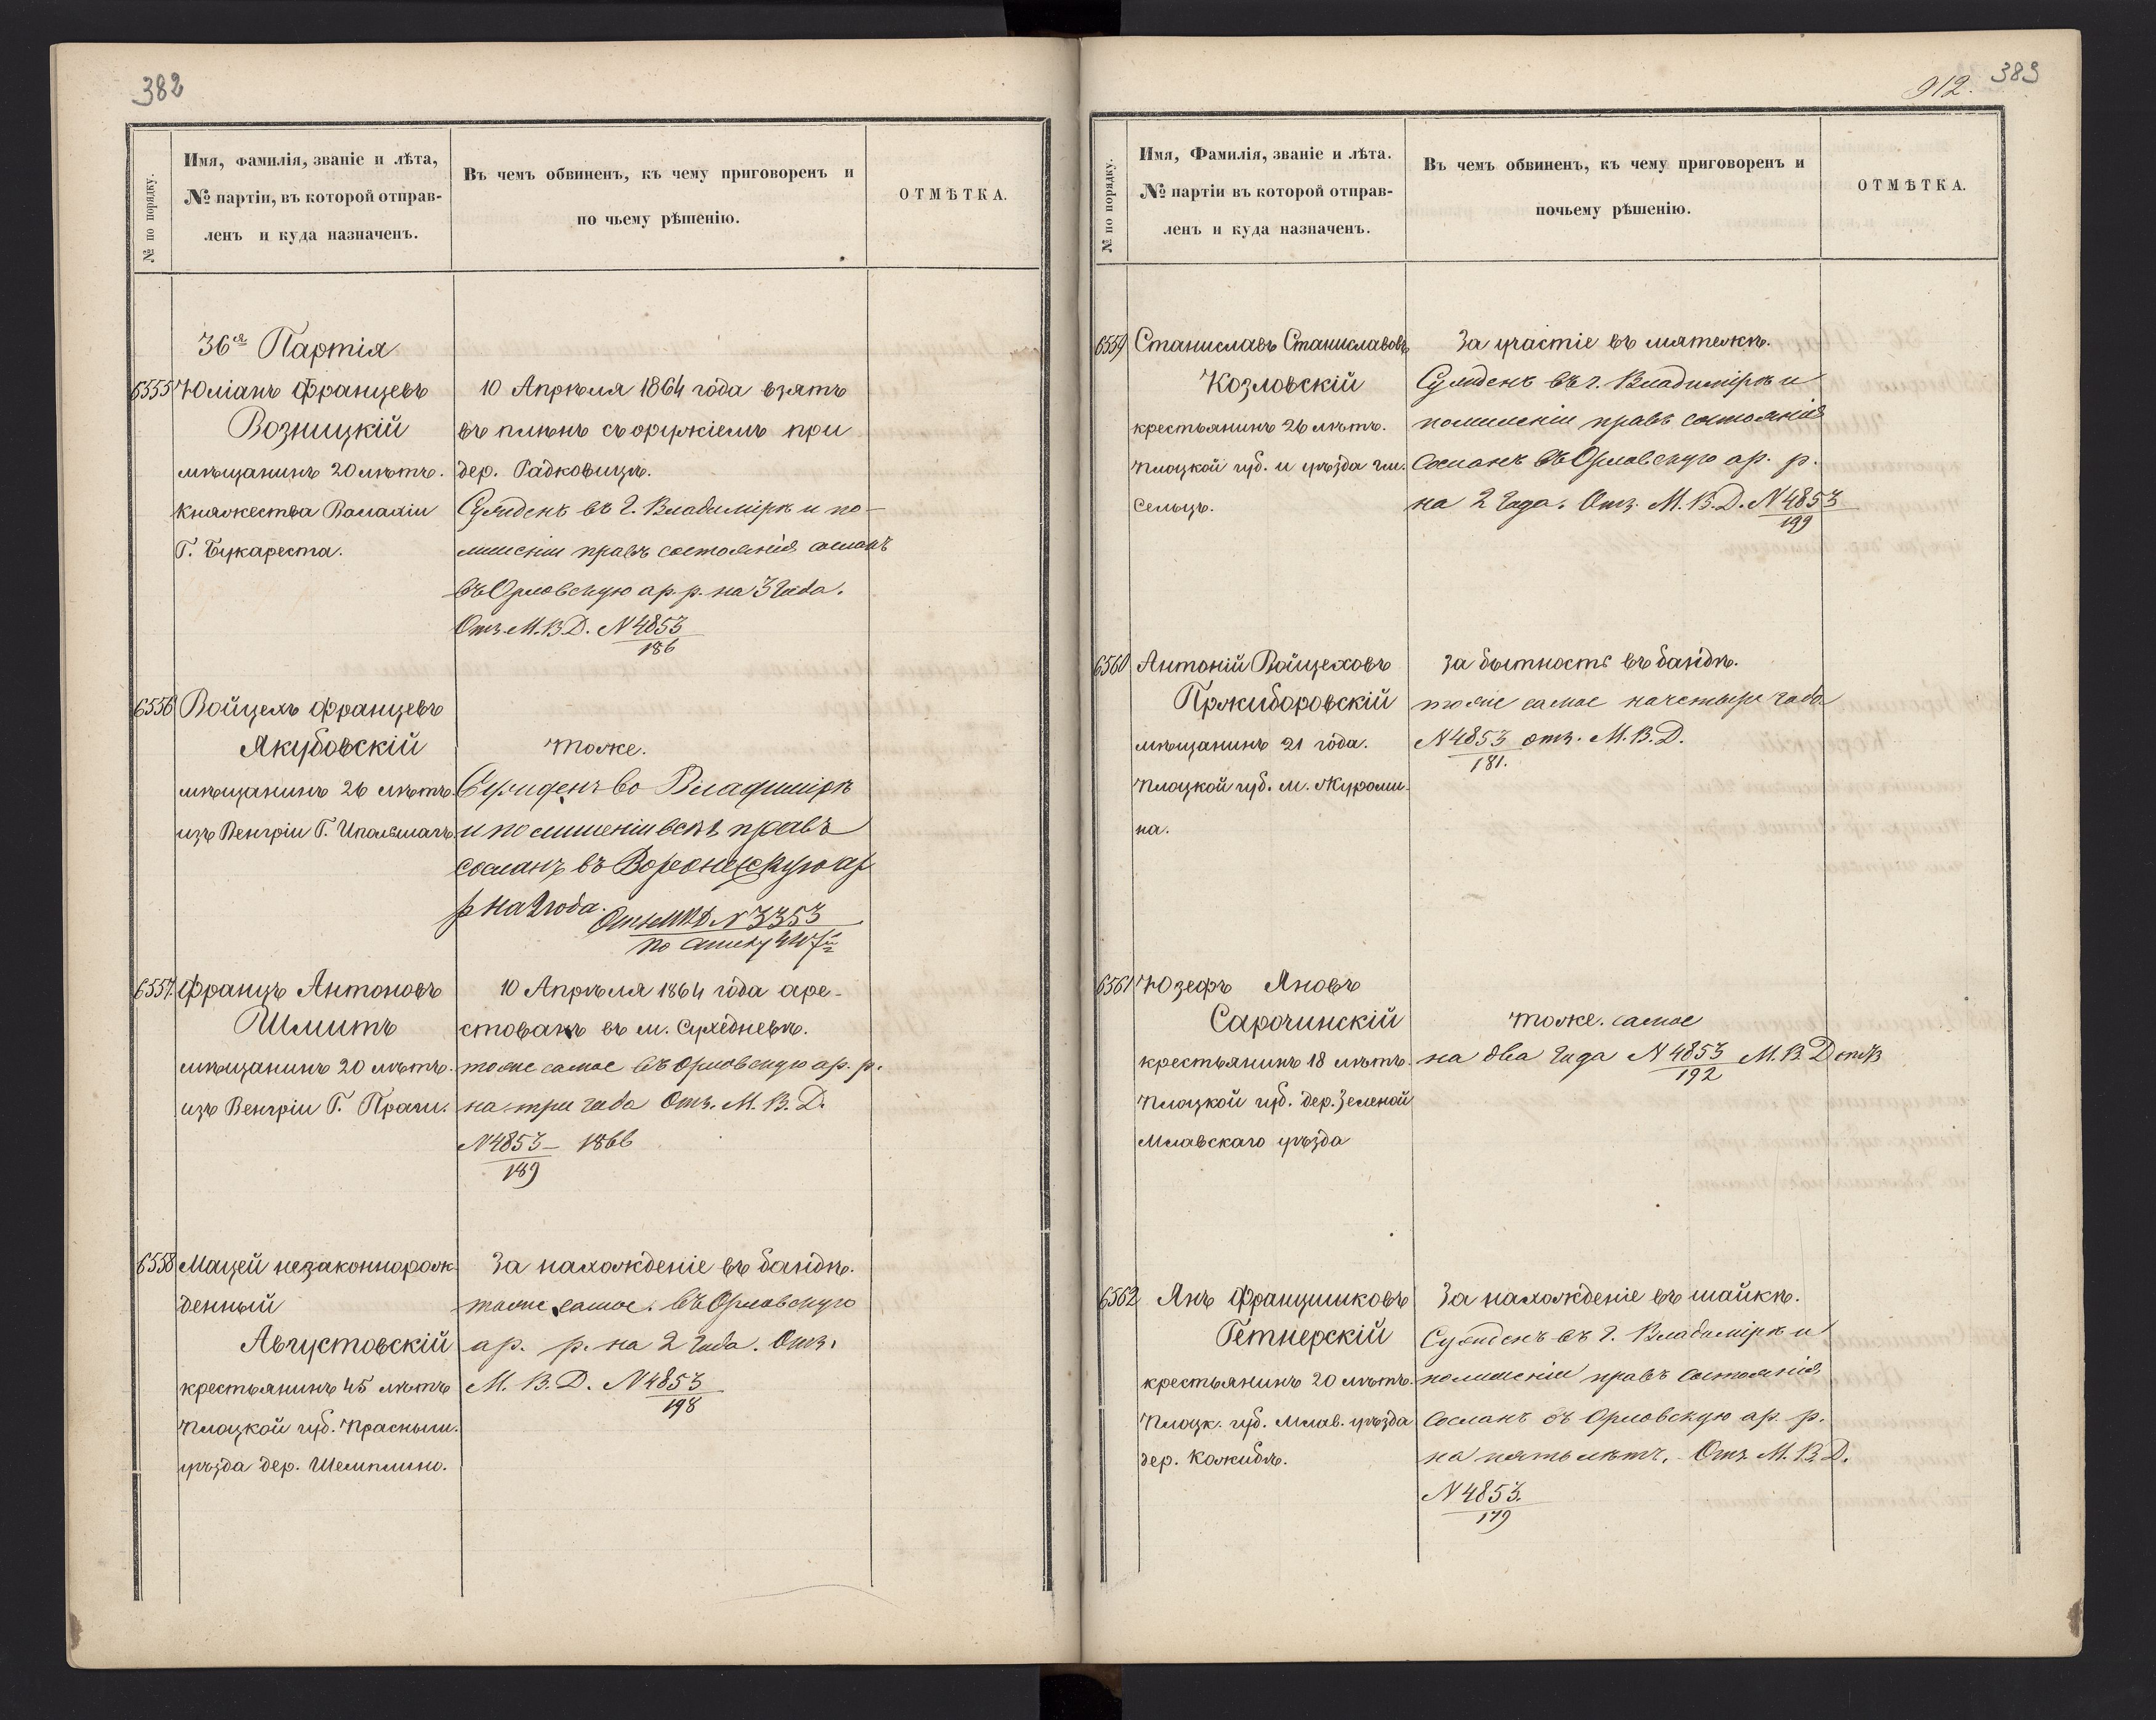 382
№ по порядку.
Имя, фамилія, званіе и лѣта,
№ партіи, въ которой отправ-
ленъ и куда назначенъ.
Въ чемъ обвиненъ, къ чему приговоренъ и
по чьему рѣшенію.
ОТМѢТКА.
36ая Партія
6555 Юліанъ Францевъ
Возницкій
мѣщанинъ 20 лѣтъ.
Княжества Валахіи
Г. Букареста.
10 Апрѣля 1864 года взятъ
въ плѣнъ съ оружіемъ при
дер. Радковицѣ.
Сужденъ въ г. Владимірѣ и по-
лишеніи правъ состоянія сосланъ
въ Орловскую ар. р. на 3 года.
Отз. М. В. Д. N 4853
186
6556 Войцехъ Францевъ
Якубовскій
мѣщанинъ 26 лѣтъ.
изъ Венгріи Г.
тоже.
Сужденъ во Владимірѣ
и по лишеніи всѣхъ правъ
сосланъ въ Воронежскую ар
р на 2 года.
Отз МВД N 3353
по списку
6557. Францъ Антоновъ
Шмитъ
мѣщанинъ 20 лѣтъ.
изъ Венгріи Г. Праги.
10 Апрѣля 1864 года аре-
стованъ въ м. Сухедневѣ.
тоже самое въ Орловскую ар. р.
на три года Отз. М. В. Д.
N 4853 – 1866
189
6558 Мацей незаконнорож-
денный
Августовскій
крестьянинъ 45 лѣтъ
Плоцкой губ. Прасныш.
уѣзда дер. Шемплино.
За нахожденіе въ бандѣ.
тоже самое. въ Орловскую
ар. р. на 2 года. Отз.
М. В. Д. N 4853
198
383
912.
№ по порядку.
Имя, Фамилія, званіе и лѣта.
№ партіи въ которой отправ-
ленъ и куда назначенъ.
Въ чемъ обвиненъ, къ чему приговоренъ и
почьему рѣшенію.
ОТМѢТКА.
6559 Станиславъ Станиславовъ
Козловскій
крестьянинъ 26 лѣтъ.
Плоцкой губ. и уѣзда гм.
Сельцъ.
За участіе въ мятежѣ.
Сужденъ въ г. Владимірѣ и
полишеніи правъ состоянія
Сосланъ въ Орловскую ар. р.
на 2 года. Отз. М. В. Д. N 4853
199
6560 Антоній Войцеховъ
Пржиборовскій
мѣщанинъ 21 года.
Плоцкой губ. м. Журоми-
на.
За бытность въ бандѣ.
тоже самое начетыре года
N 4853 отз. М. В. Д.
181.
6561 Юзефъ Яновъ
Сарочинскій
крестьянинъ 18 лѣтъ.
Плоцкой губ. дер. Зеленой
Млавскаго уѣзда
тоже. самое
на два года N 4853 М. В. Д отз
192
6562 Янъ Францишковъ
Гетнерскій
крестьянинъ 20 лѣтъ.
Плоцк. губ. Млав. уѣзда
дер. Кожибѣ.
За нахожденіе въ шайкѣ.
Сужденъ въ г. Владимірѣ и
полишеніи правъ состоянія
Сосланъ въ Орловскую ар. р.
на пять лѣтъ. Отз. М. В. Д.
N 4853.
179